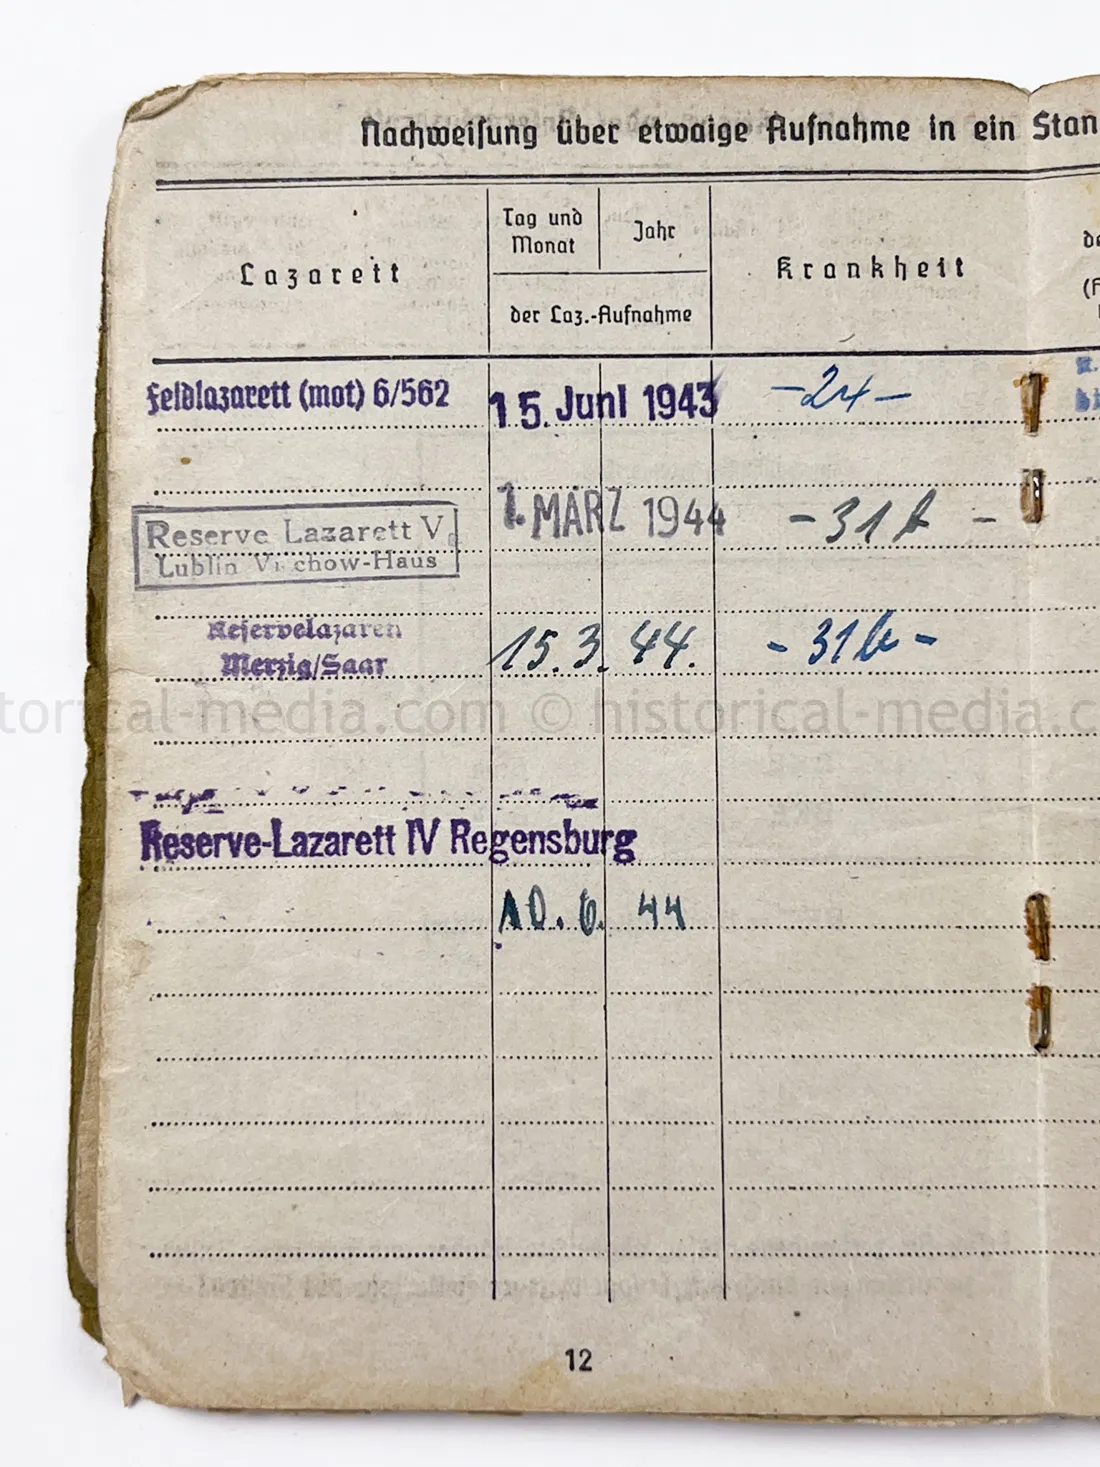 Nachweisung über etwaige Aufnahme in ein Stan
Lazarett
Tag und
Monat
Jahr
der Laz.-Aufnahme
Krankheit
de
(F
Feldlazarett (mot) 6/562 15. Juni 1943 -24-
1. MÄRZ 1944 -31b -
Reserve Lazarett V
Lublin Virchow-Haus
Reservelazarett
Merzig/Saar 15.3.44. -31b-
historical-media.com © historical-media.c
Reserve-Lazarett IV Regensburg
10.6.44
12